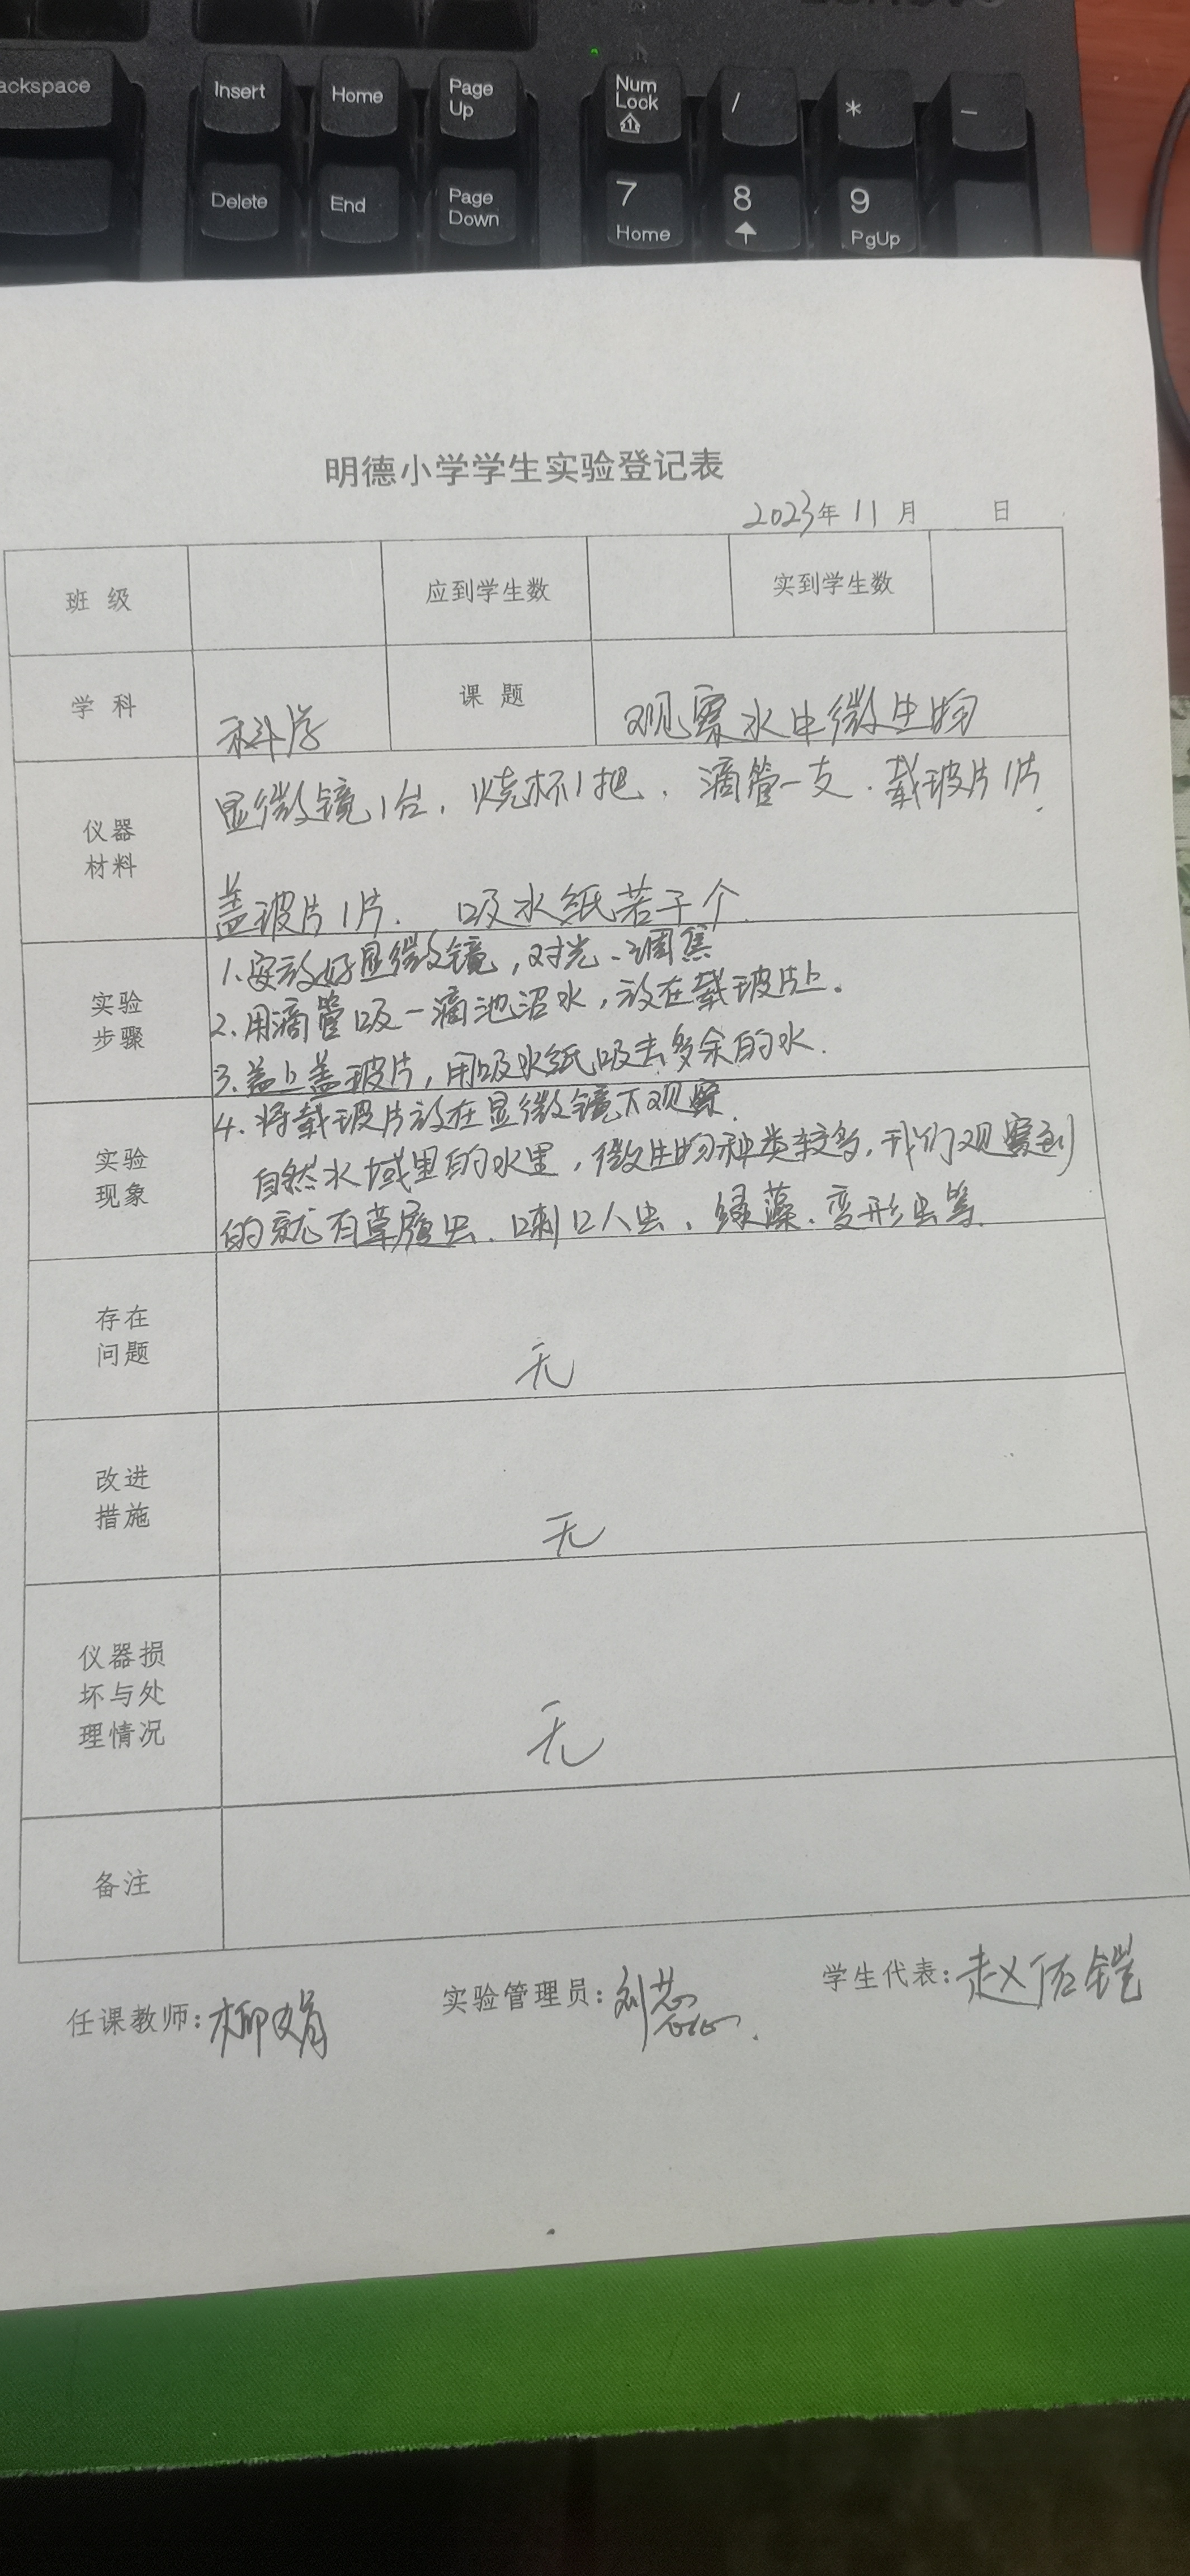 ackspace Insert Home Page Up Num Lock / * -
Delete End Page Down 7 Home 8 9 PgUp
明德小学学生实验登记表
2023年 11 月 日
班 级 应到学生数 实到学生数
学 科 科学 课 题 观察水中微生物
仪器 材料
显微镜1台,烧杯1把、滴管一支、载玻片1片
盖玻片1片. 吸水纸若干个.
实验 步骤
1.安放好显微镜,对光、调焦
2.用滴管吸一滴池沼水,放在载玻片上。
3.盖上盖玻片,用吸水纸吸去多余的水.
4.将载玻片放在显微镜下观察.
实验 现象
自然水域里的水里,微生物种类较多,我们观察到
的就有草履虫、喇叭虫、绿藻、变形虫等.
存在 问题
无
改进 措施
无
仪器损 坏与处 理情况
无
备注
任课教师:柳娟 实验管理员:刘蕊 学生代表:赵伍铠